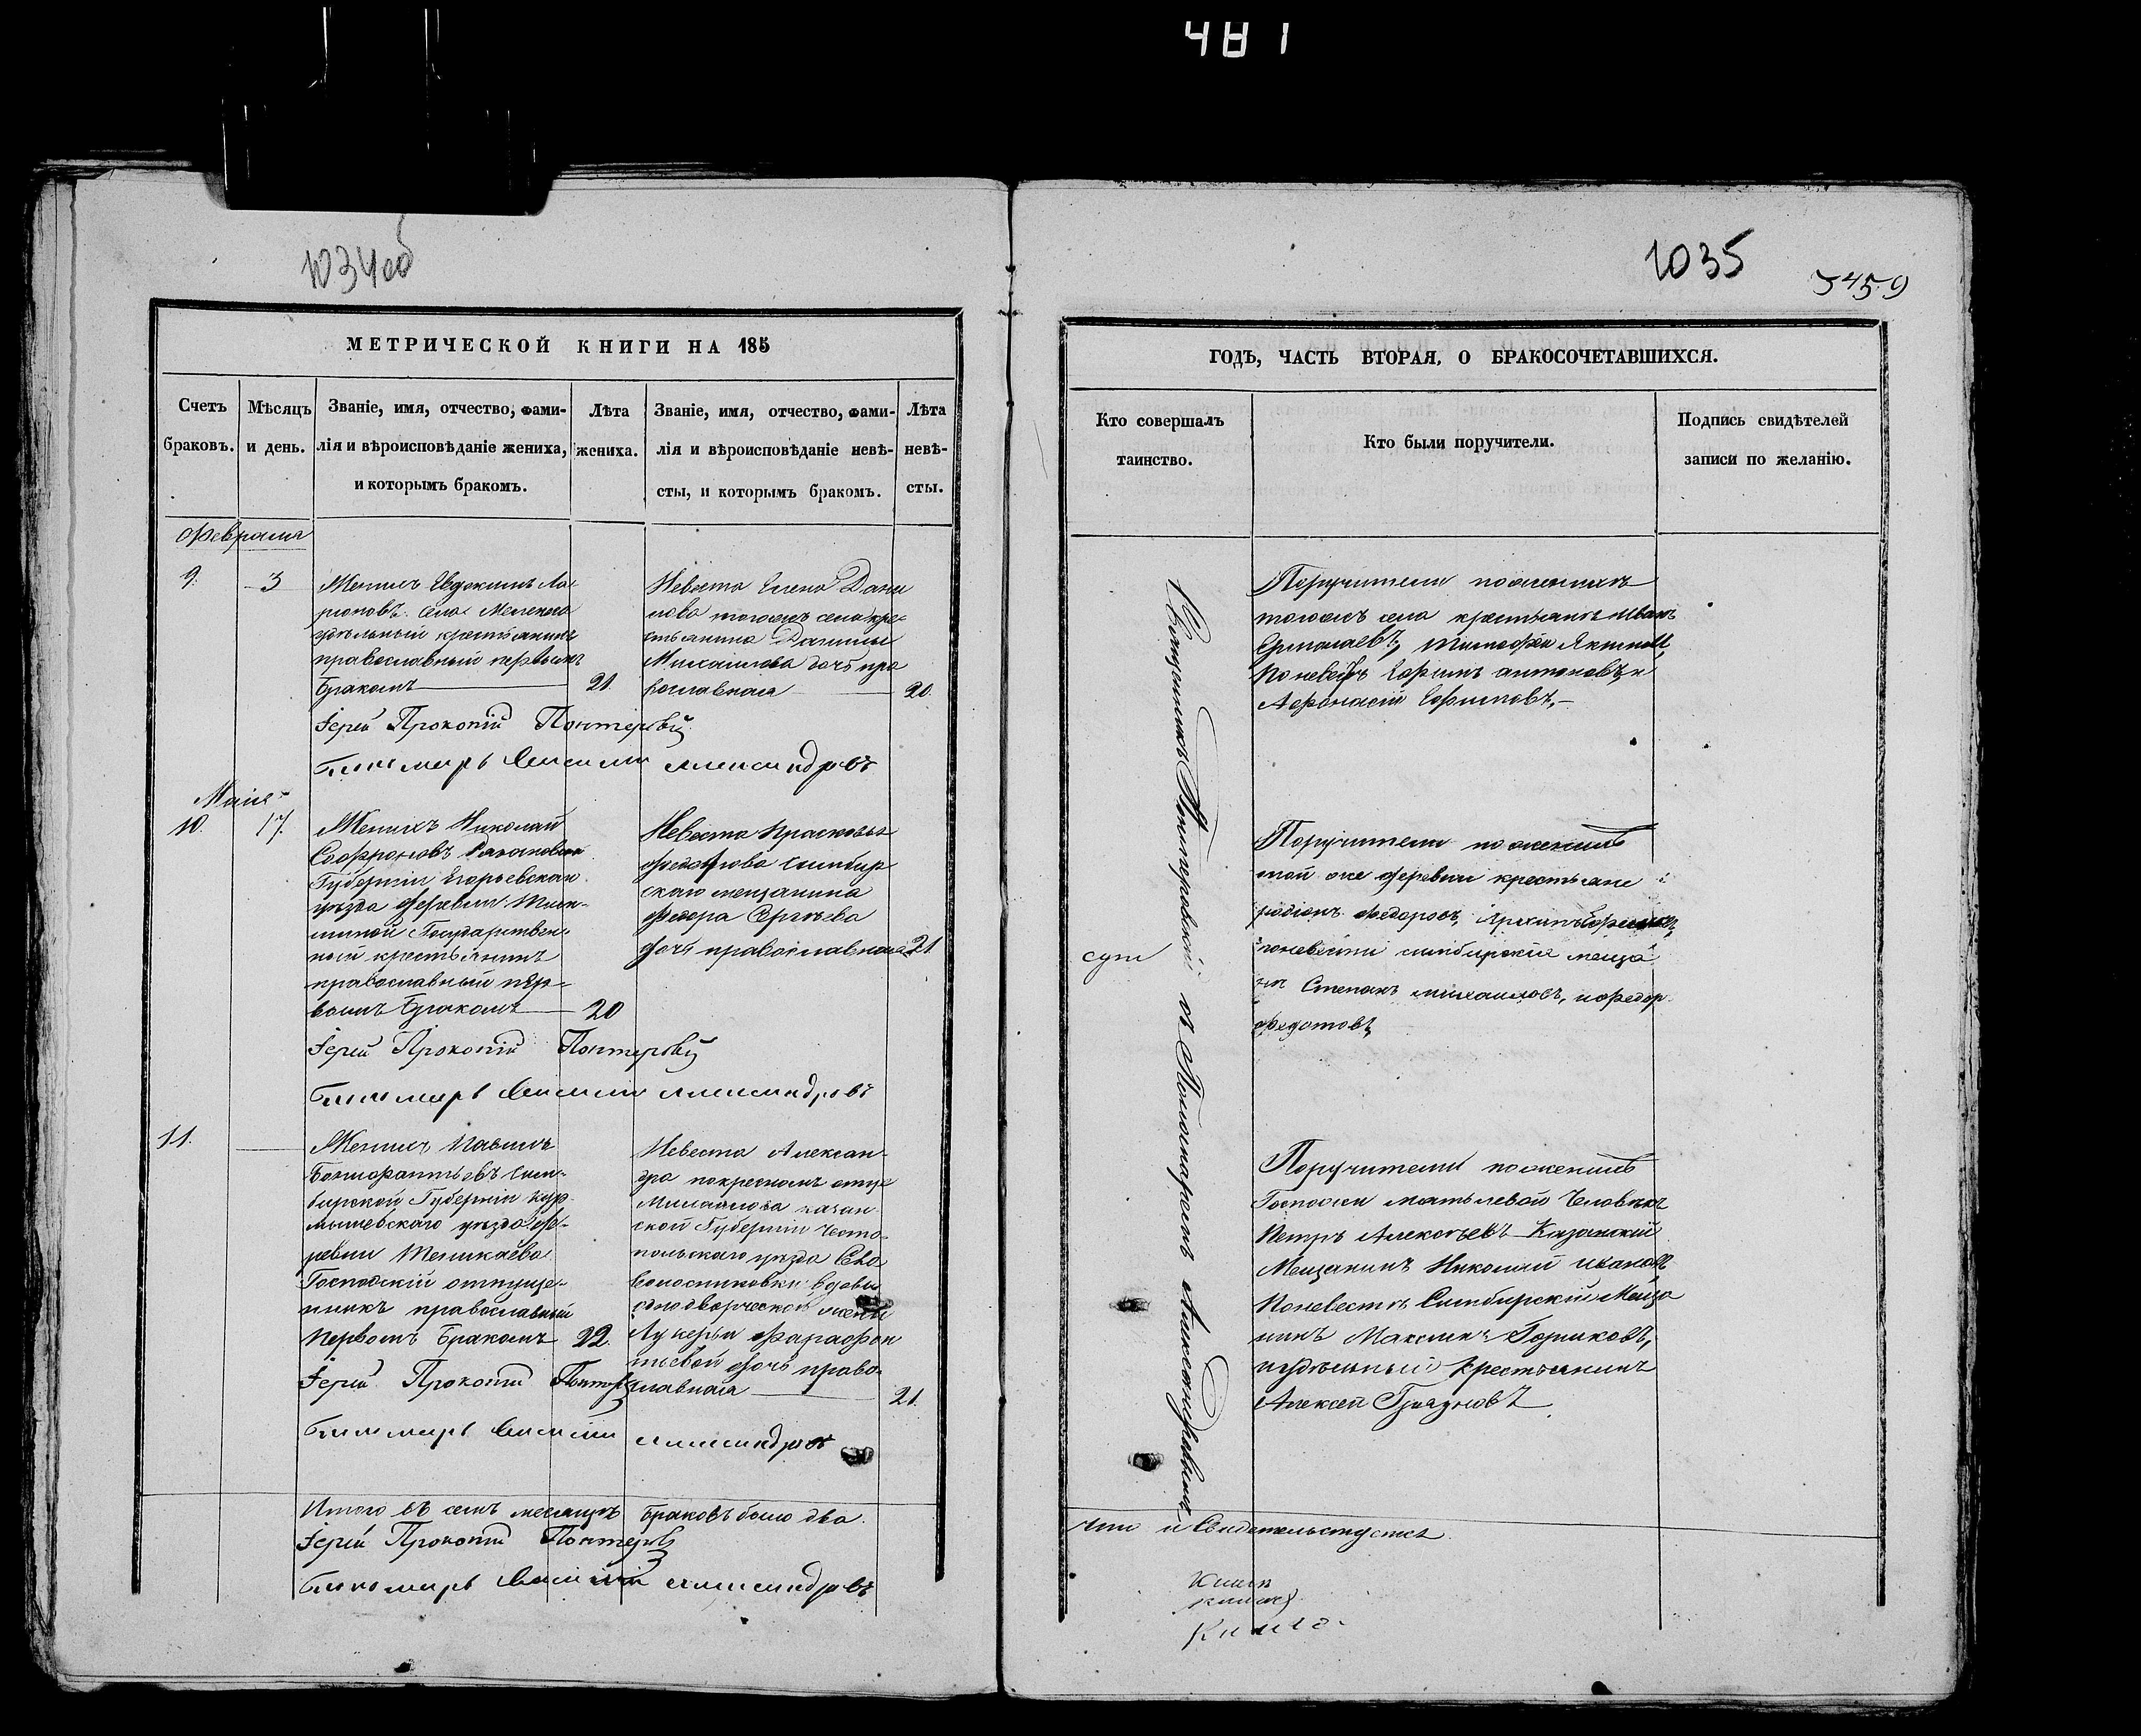 481
1034об
1035
5459
МЕТРИЧЕСКОЙ КНИГИ НА 185
Счетъ браковъ.
Мѣсяцъ и день.
Званіе, имя, отчество, фами-
лія и вѣроисповѣданіе жениха,
и которымъ бракомъ.
Лѣта жениха.
Званіе, имя, отчество, фами-
лія и вѣроисповѣданіе невѣ-
сты, и которымъ бракомъ.
Лѣта невѣ-
сты.
Февраля
9. 3
Женихъ Евдокимъ Ла-
ріоновъ села
удѣльный крестьянинъ
православный первымъ
бракомъ 21.
Невеста Елена Дани
лова тогожъ села кре-
стьянина Данилы
Михаилова дочь пра
вославная 20.
Іерей Прокопій
Пономарь Василий Александровъ
Маія
10. 17.
Женихъ Николай
Софроновъ
Губерніи Егорьевскаго
уѣзда деревни
Государствен-
ный крестьянинъ
православный пер-
вымъ бракомъ 20
Невеста Прасковья
Федотова симбир
скаго мещанина
дочь православная 21
Іерей Прокопій
Пономарь Василий Александровъ
11.
Женихъ Павелъ
Бонифантьевъ Сим-
бирской Губерніи Кур-
мышевского уѣзда де-
ревни
Господскій отпуще-
никъ православный
первымъ бракомъ 22.
Невеста Алексан-
дра покресномъ отце
Михаилова казан-
ской Губерніи Чисто-
польскаго уѣзда Села
вдовы
однодворческой жены
Лукерьи Фарафон
тьевой дочь право-
славная 21.
Іерей Прокопій
Пономарь Василий Александровъ
Итого въ семъ месяцѣ браковъ было два.
Іерей Прокопій
Пономарь Василий Александровъ
ГОДЪ, ЧАСТЬ ВТОРАЯ, О БРАКОСОЧЕТАВШИХСЯ.
Кто совершалъ
таинство.
Кто были поручители.
Подпись свидѣтелей
записи по желанію.
Священникъ съ Пономаремъ Александровымъ
Поручители поженихѣ
тогожъ села крестьяне Иванъ
Ермолаевъ, Тимофей
Поневестѣ Ефимъ Антоновъ и
Афонасій Ефимовъ,
Поручители поженихѣ
той же деревни крестьяне
родіонъ Федоровъ, Архипъ
поневести симбирскіе меща
не Степанъ Михаиловъ, и федор
Федотовъ,
Поручители поженихѣ
Госпожи человекъ
Петръ Алексѣевъ Казанскій
Мещанинъ Николай Ивановъ
Поневестѣ Симбирскій Меща
нинъ Максимъ Горшковъ,
и удѣльный крестьянинъ
Алексей
что и Свидетельствуетъ
Книга